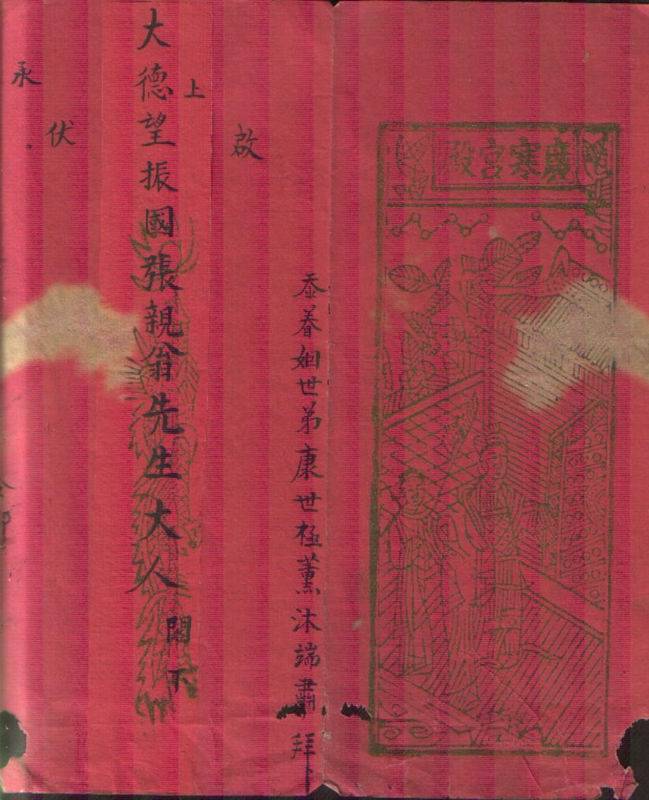 廣寒宮殿
忝眷姻世弟康世極薰沐端肅拜
啟
上
大德望振國張親翁先生大人閣下
伏
承